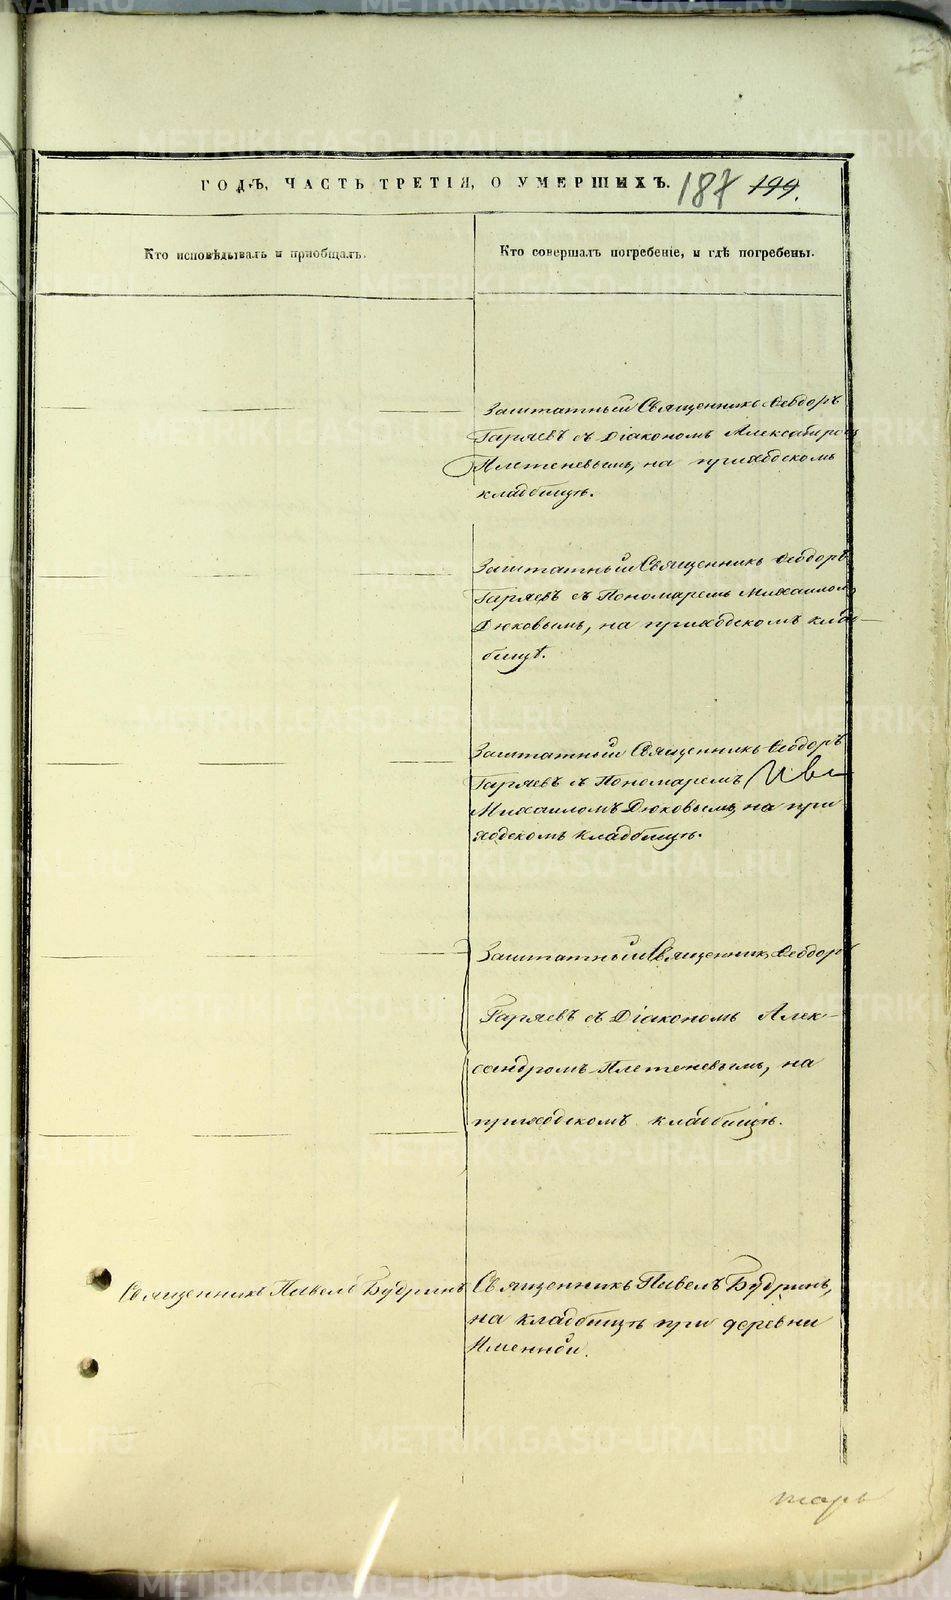 ГОДЪ, ЧАСТЬ ТРЕТІЯ, О УМЕРШИХЪ. 187 199.
Кто исповѣдывалъ и пріобщалъ.
Кто совершалъ погребеніе, и гдѣ погребены.
Заштатный Священникъ Ѳеодоръ
Гаряевъ съ Діакономъ Александромъ
Плетеневымъ, на приходскомъ
кладбищѣ.
Заштатный Священникъ Ѳеодоръ
Гаряевъ съ Пономаремъ Михаиломъ
Дюковымъ, на приходскомъ клад-
бищѣ.
Заштатный Священникъ Ѳеодоръ
Гаряевъ съ Пономаремъ
Михаиломъ Дюковымъ, на при
ходскомъ кладбищѣ.
Заштатный Священникъ Ѳеодоръ
Гаряевъ съ Діакономъ Алек-
сандромъ Плетеневымъ, на
приходскомъ кладбищѣ.
Священникъ Павелъ Будринъ
Священникъ Павелъ Будринъ,
на кладбищѣ при деревни
Именной.
тарь
METRIKI.GASO-URAL.RU